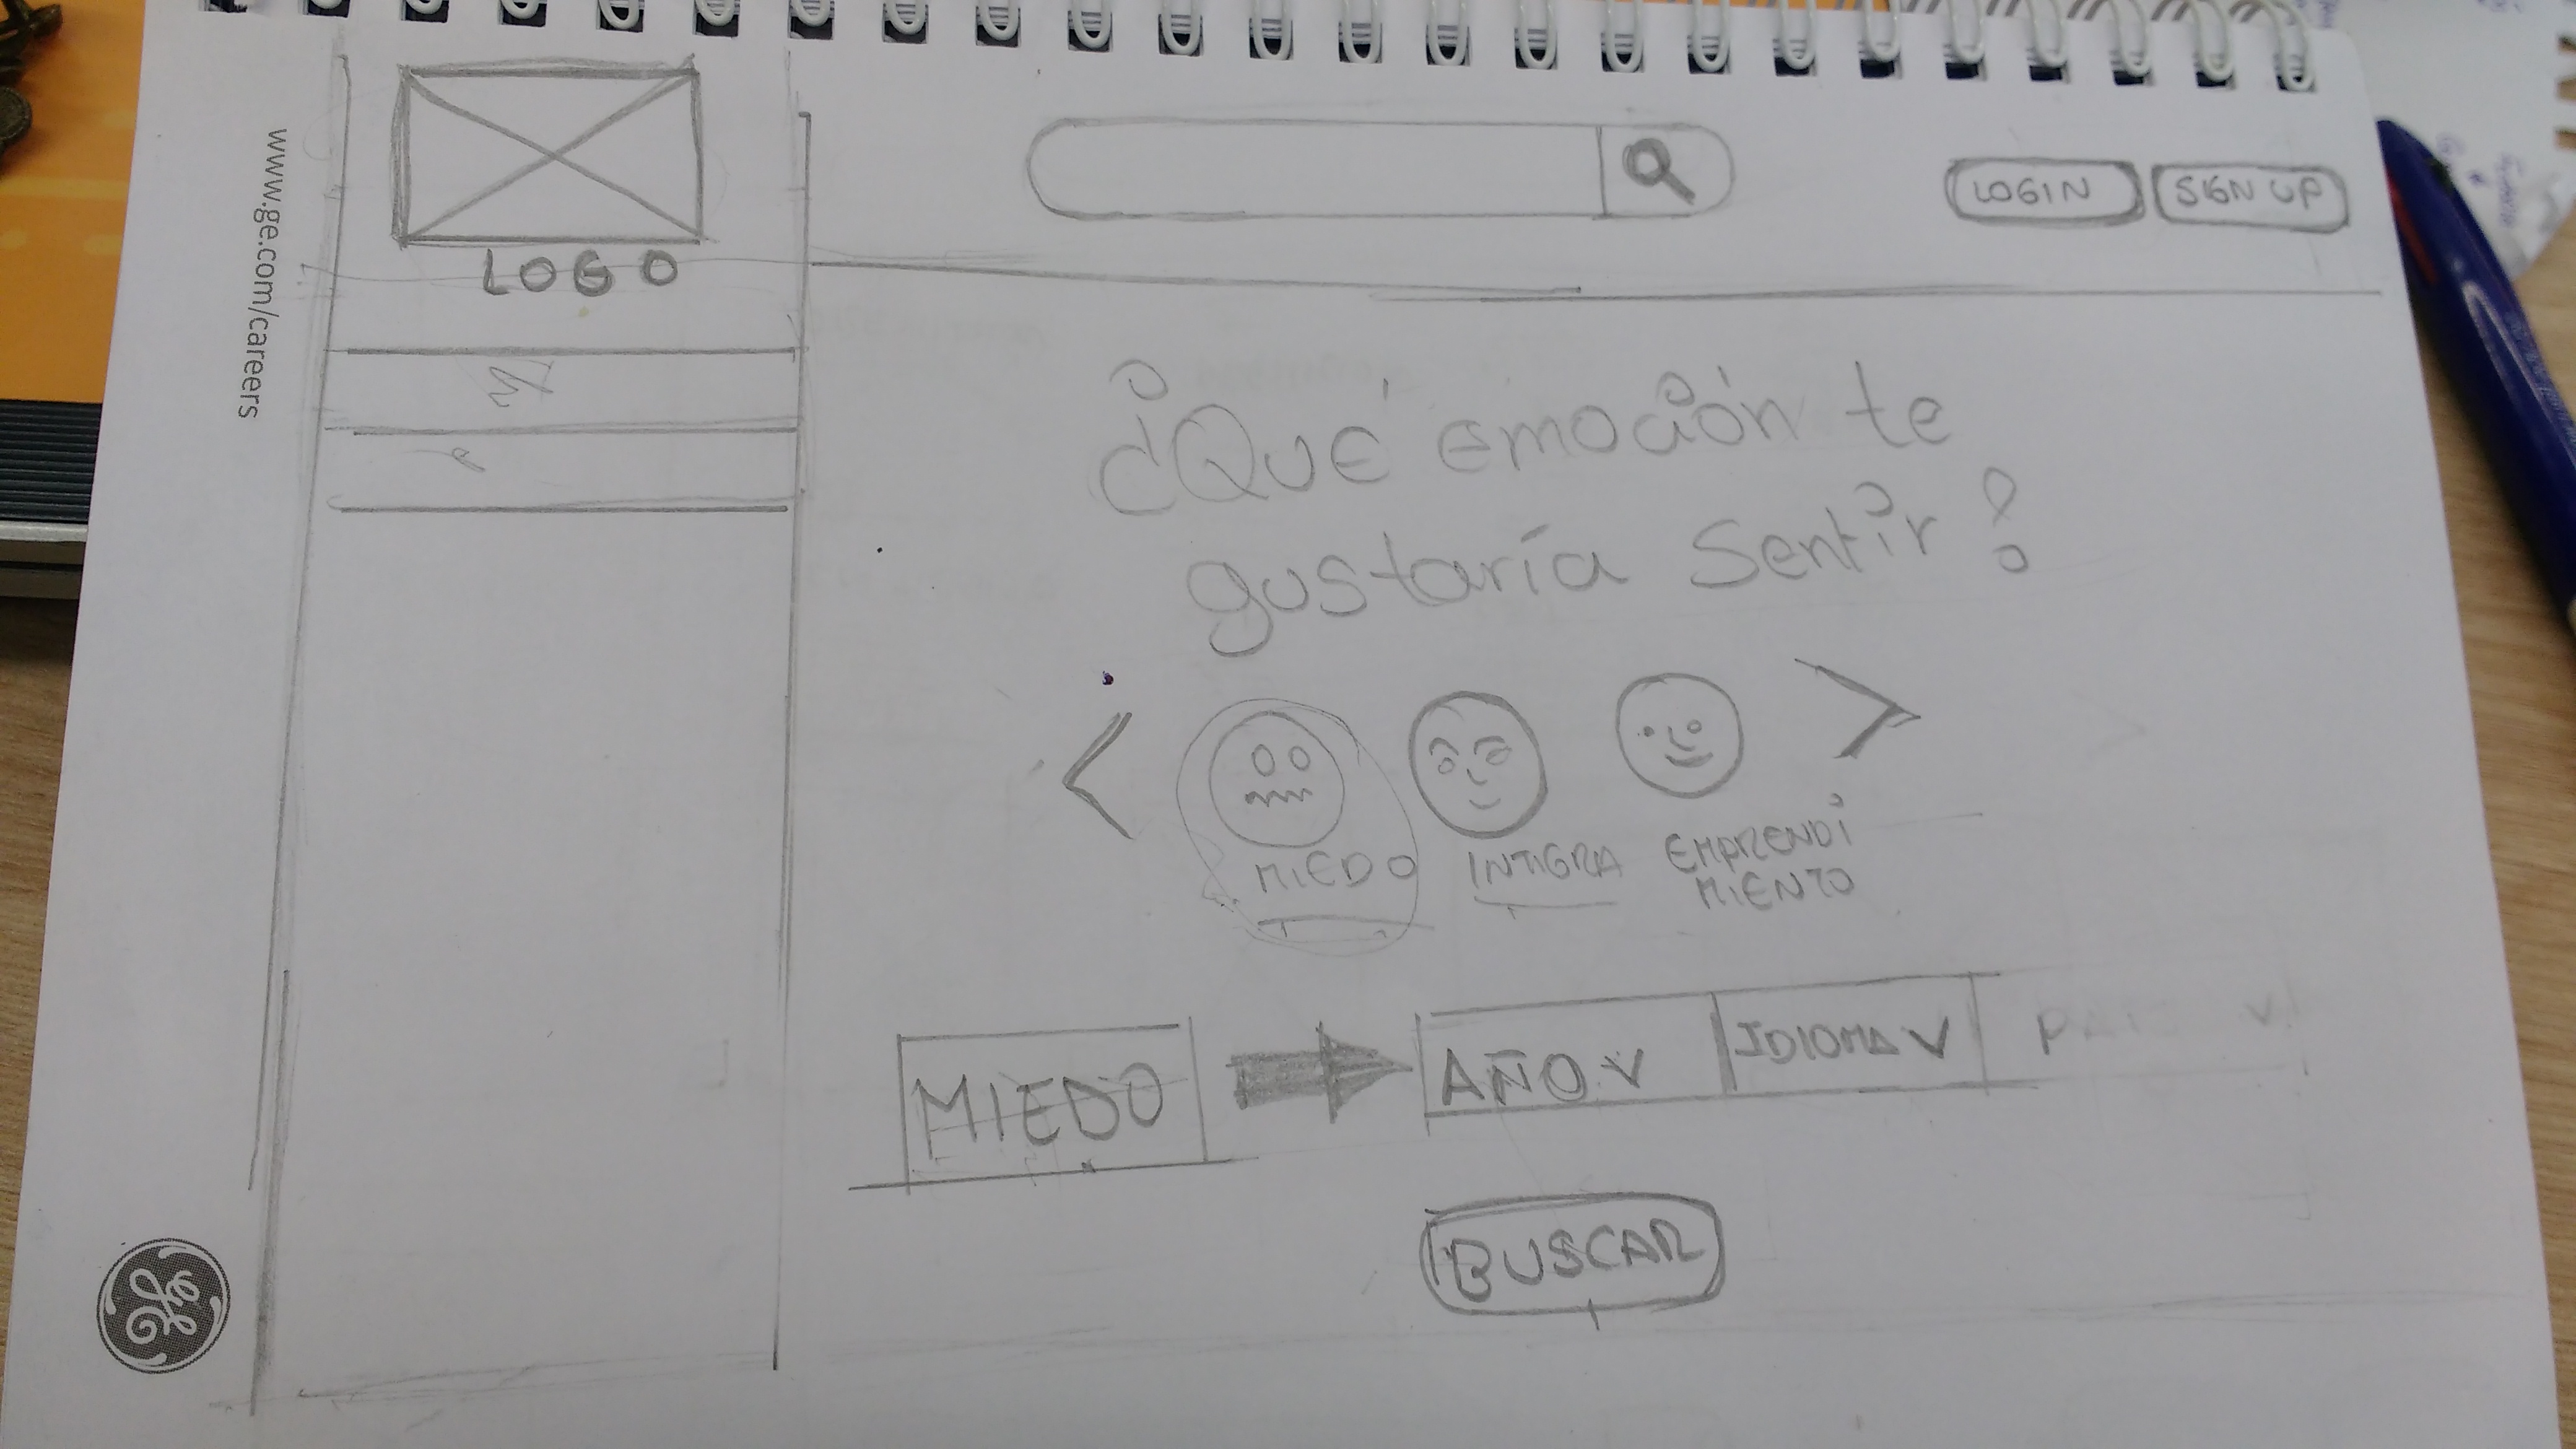 www.ge.com/careers
LOGO
LOGIN
SIGN UP
¿Qué emoción te
gustaría Sentir?
MIEDO
INTIGRA
EMPRENDI
MIENTO
MIEDO
AÑO
IDIOMA
BUSCAR